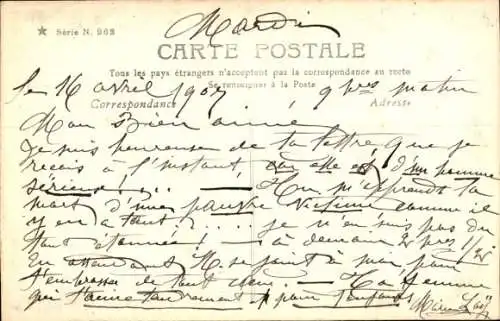 Mardi
★ Série N. 963
CARTE POSTALE
Tous les pays étrangers n'acceptent pas la correspondance au recto
Se renseigner à la Poste
Correspondance
Adresse
le 16 avril 1907 9 hres matin
Mon Bien aimé
Je suis heureuse de ta lettre que je
reçois à l'instant car elle est d'un homme
sérieux !... Tu m'apprends la
mort d'une pauvre victime comme il
y en a tant je n'en suis pas du
tout étonnée ! à demain 2 hres 1/2
En attendant se joint à moi pour
t'embrasser de tout cœur. Ta femme
qui t'aime tendrement pour